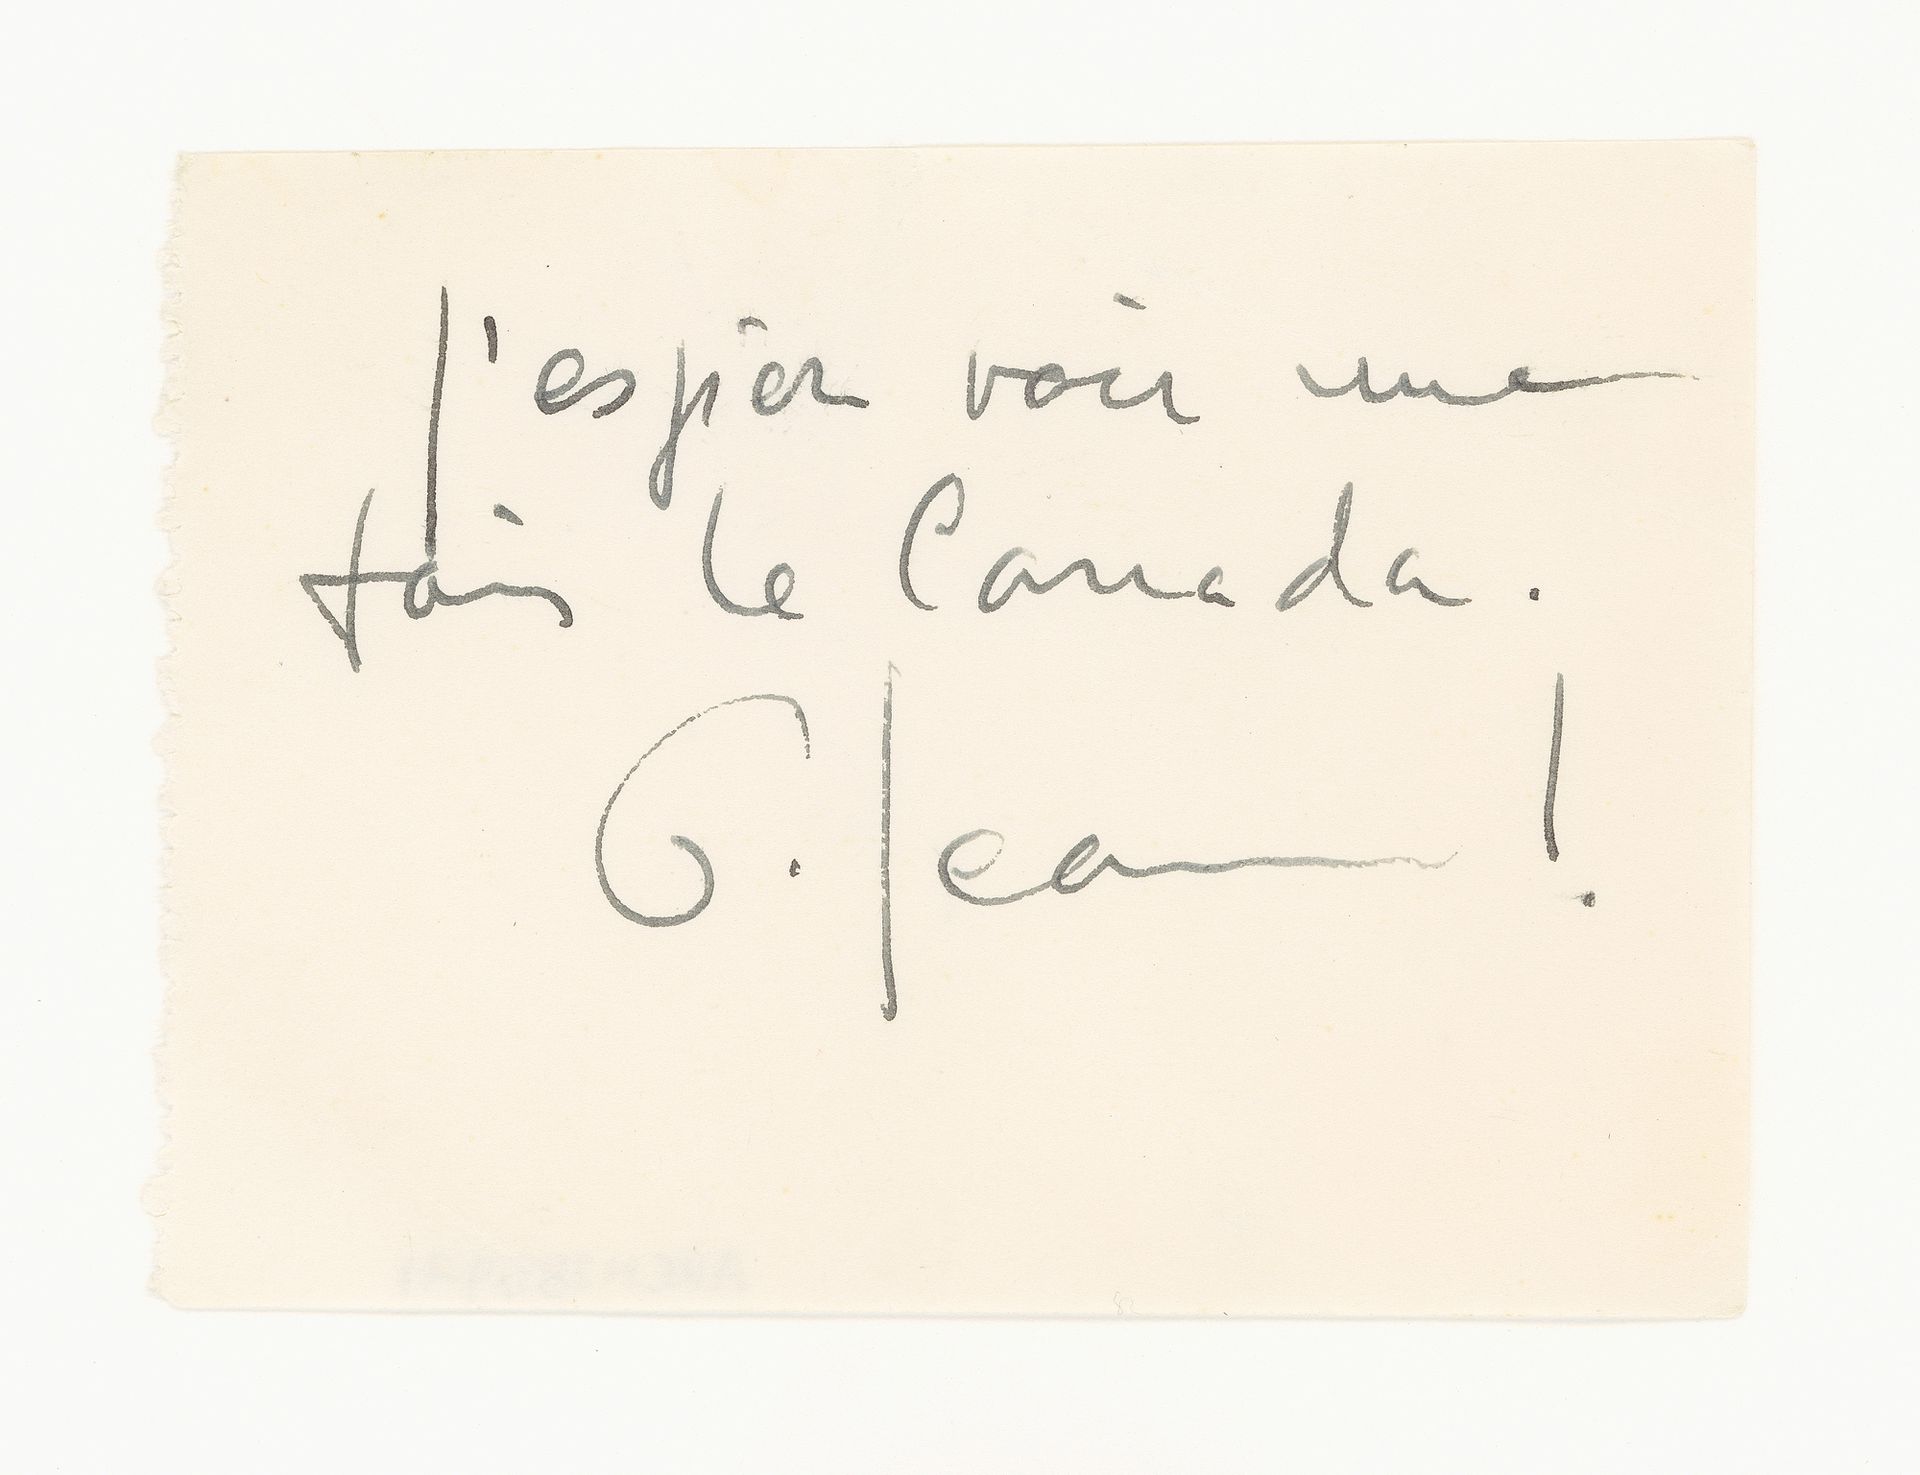 j'espère voir une
fois le Canada.
G. Jean !